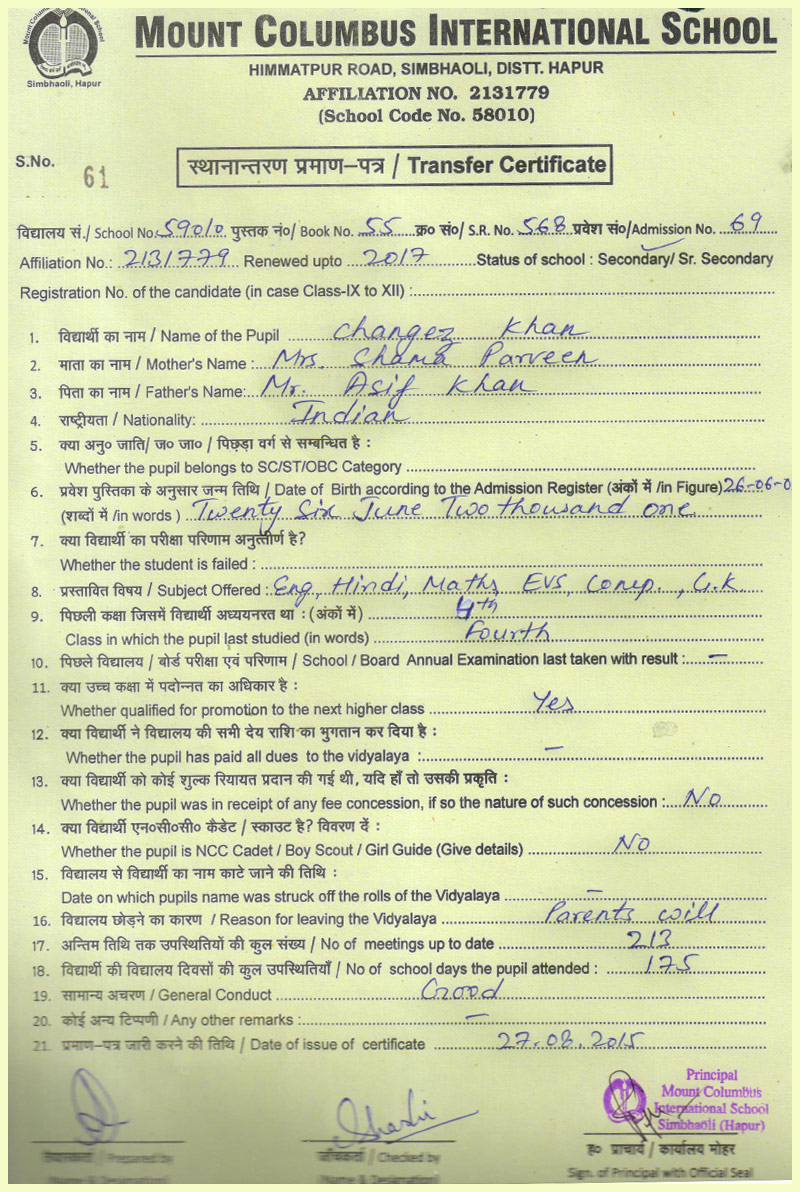 Mount Columbus International School
Simbhaoli, Hapur
MOUNT COLUMBUS INTERNATIONAL SCHOOL
HIMMATPUR ROAD, SIMBHAOLI, DISTT. HAPUR
AFFILIATION NO. 2131779
(School Code No. 58010)
S.No. 61
स्थानान्तरण प्रमाण–पत्र / Transfer Certificate
विद्यालय सं./ School No. 59010 पुस्तक नं०/ Book No. 55 क्र० सं०/ S.R. No. 568 प्रवेश सं०/Admission No. 69
Affiliation No.: 2131779 Renewed upto 2017 Status of school : Secondary/ Sr. Secondary
Registration No. of the candidate (in case Class-IX to XII) :
1. विद्यार्थी का नाम / Name of the Pupil Changez Khan
2. माता का नाम / Mother's Name : Mrs. Shama Parveen
3. पिता का नाम / Father's Name: Mr. Asif Khan
4. राष्ट्रीयता / Nationality: Indian
5. क्या अनु० जाति/ ज० जा० / पिछड़ा वर्ग से सम्बन्धित है :
Whether the pupil belongs to SC/ST/OBC Category
6. प्रवेश पुस्तिका के अनुसार जन्म तिथि / Date of Birth according to the Admission Register (अंकों में /in Figure) 26-06-0
(शब्दों में /in words ) Twenty Six June Two thousand one
7. क्या विद्यार्थी का परीक्षा परिणाम अनुत्तीर्ण है?
Whether the student is failed :
8. प्रस्तावित विषय / Subject Offered : Eng, Hindi, Maths, EVS, Comp., G.K
9. पिछली कक्षा जिसमें विद्यार्थी अध्ययनरत था : (अंकों में ) 4th
Class in which the pupil last studied (in words) Fourth
10. पिछले विद्यालय / बोर्ड परीक्षा एवं परिणाम / School / Board Annual Examination last taken with result : –
11. क्या उच्च कक्षा में पदोन्नत का अधिकार है :
Whether qualified for promotion to the next higher class Yes
12. क्या विद्यार्थी ने विद्यालय की सभी देय राशि का भुगतान कर दिया है :
Whether the pupil has paid all dues to the vidyalaya : –
13. क्या विद्यार्थी को कोई शुल्क रियायत प्रदान की गई थी, यदि हाँ तो उसकी प्रकृति :
Whether the pupil was in receipt of any fee concession, if so the nature of such concession : No
14. क्या विद्यार्थी एन०सी०सी० कैडेट / स्काउट है? विवरण दें :
Whether the pupil is NCC Cadet / Boy Scout / Girl Guide (Give details) No
15. विद्यालय से विद्यार्थी का नाम काटे जाने की तिथि :
Date on which pupils name was struck off the rolls of the Vidyalaya –
16. विद्यालय छोड़ने का कारण / Reason for leaving the Vidyalaya Parents will
17. अन्तिम तिथि तक उपस्थितियों की कुल संख्य / No of meetings up to date 213
18. विद्यार्थी की विद्यालय दिवसों की कुल उपस्थितियाँ / No of school days the pupil attended : 175
19. सामान्य अचरण / General Conduct Good
20. कोई अन्य टिप्पणी / Any other remarks : –
21. प्रमाण–पत्र जारी करने की तिथि / Date of issue of certificate 27.08.2015
Principal
Mount Columbus
International School
Simbhaoli (Hapur)
Shashi
तैयारकर्ता / Prepared by
जाँचकर्ता / Checked by
ह० प्राचार्य / कार्यालय मोहर
(Name & Designation)
(Name & Designation)
Sign. of Principal with Official Seal